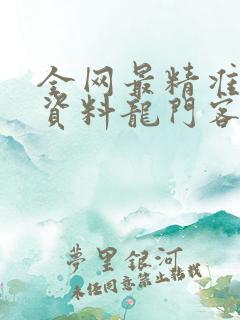 全网最精准
資料龍門客
夢里銀河
未经同意禁止转载